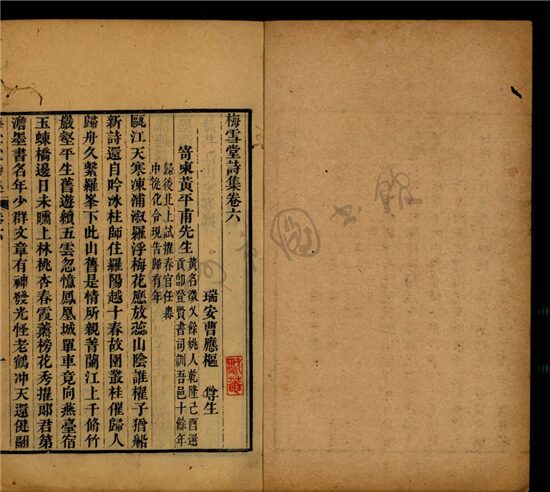 梅雪堂詩集卷六
瑞安曹應樞 尊生
寄柬黃平甫先生
黃名徵乂餘姚人乾隆己酉選
貢卽登賢書司訓吾邑十餘年
歸後北上試擢春官任
申從化令現告歸有年
甌江天寒凍浦漵羅浮梅花應放蕊山陰誰權子猶船
新詩還自吟冰柱師住羅陽越十春故園叢桂催歸人
歸舟久繫羅峯下此山舊是情所親菁蘭江上千條竹
巖壑平生舊遊續五雲忽憶鳳凰城單車竟向燕臺宿
玉蝀橋邊日未曛上林桃杏春霞薰榜花秀擢郞君第
澹墨書名年少羣文章有神發光怪老鶴冲天還健翮